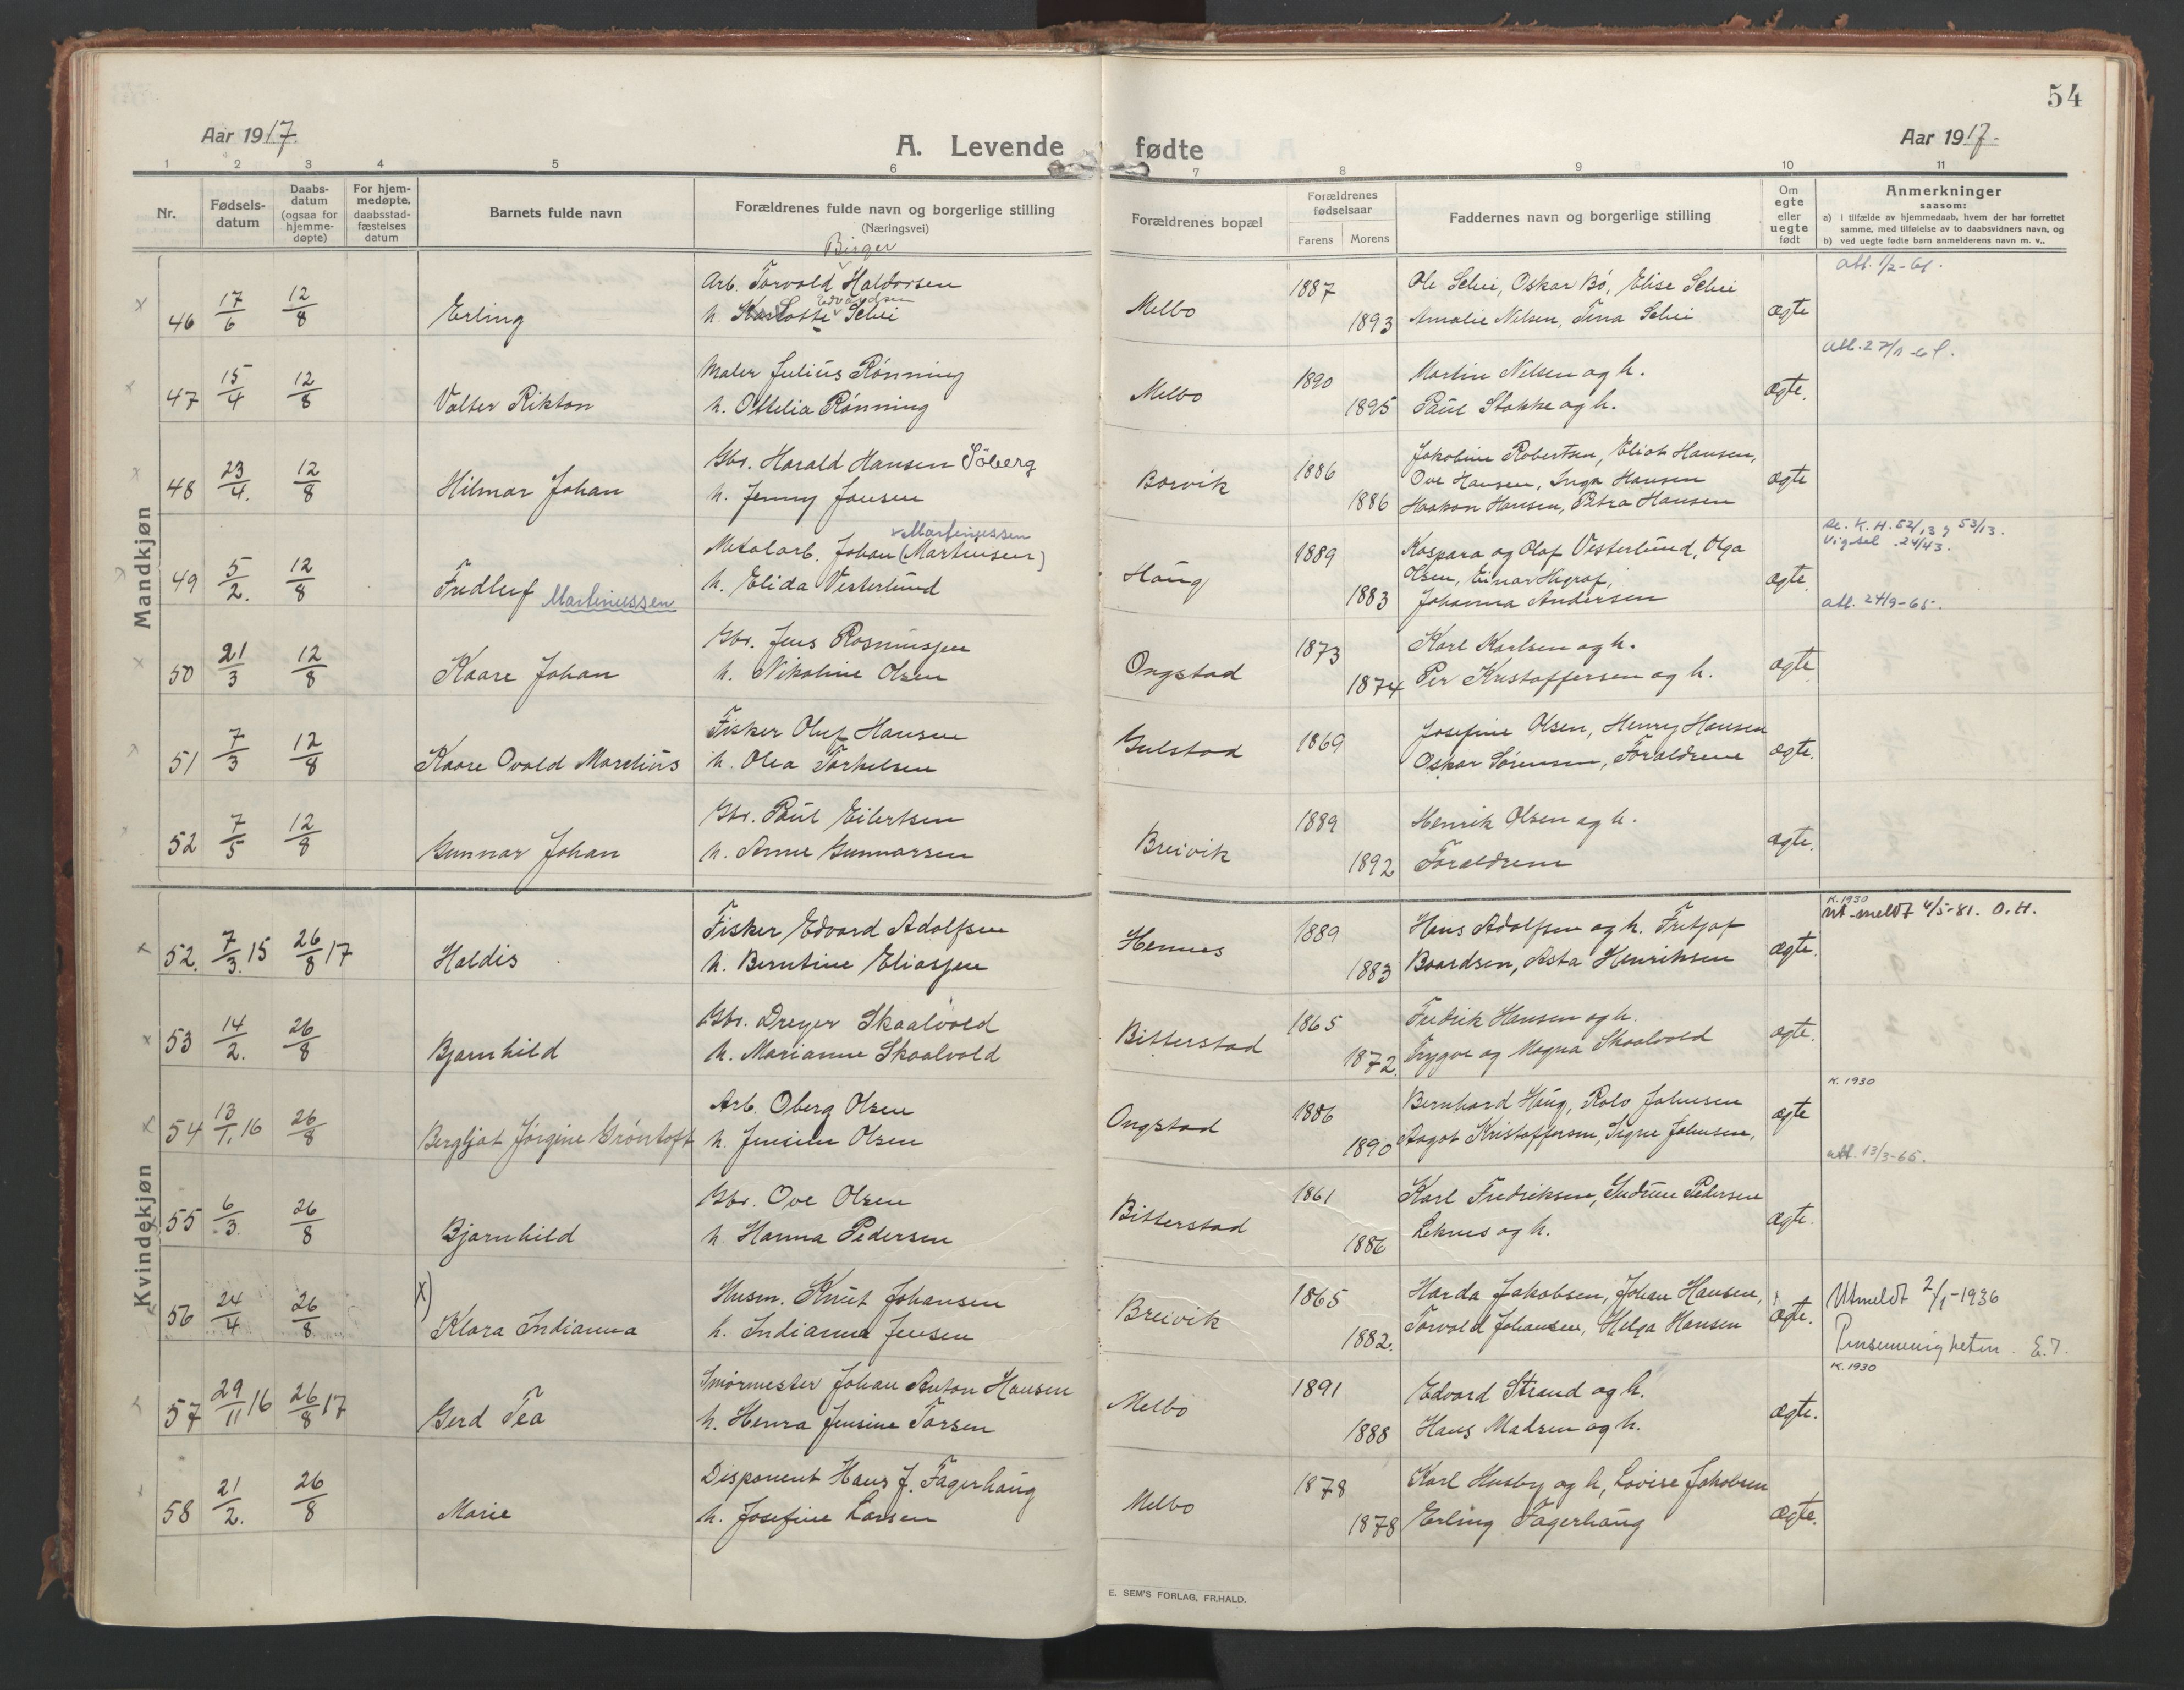 54
Aar 1917.
A. Levende fødte
Aar 1917.
1 2 3 4 5 6 7 8 9 10 11
Nr.
Fødsels-
datum
Daabs-
datum
(ogsaa for
hjemme-
døpte)
For hjem-
medøpte,
daabsstad-
fæstelses
datum
Barnets fulde navn
Forældrenes fulde navn og borgerlige stilling
(Næringsvei)
Forældrenes bopæl
Forældrenes
fødselsaar
Farens Morens
Faddernes navn og borgerlige stilling
Om
egte
eller
uegte
født
Anmerkninger
saasom:
a) i tilfælde av hjemmedaab, hvem der har forrettet
samme, med tilføielse av to daabsvidners navn, og
b) ved uegte fødte barn anmelderens navn m. v..
Mandkjøn
Birger
att. 1/2-61.
Arb. Torvald Haldorsen 1887 Ole Schei, Oskar Bö, Elise Schei
Edvardsen
46 17/6 12/8 Erling h. Karlotte Schei Melbo 1893 Amalie Nelsen, Tina Schei ægte
att. 27/1-61.
Maler Julius Rönning 1890 Martin Nelsen og h.
47 15/4 12/8 Valter Rikton h. Ottelia Rönning Melbo 1895 Paul Stokke og h. ægte.
Gbr. Harald Hansen Söberg 1886 Jakobine Robertsen, Eliot Hansen,
48 23/4. 12/8 Hilmar Johan h. Jenny Jensen Borvik Ove Hansen, Inga Hansen ægte
1886 Haakon Hansen, Petra Hansen
Martinussen
se. K. H. 52/13 og 53/13.
Vigsel 24/43.
Metalarb. Johan (Martinsen) 1889 Kaspara og Olaf Vesterlund, Olga
49 5/2. 12/8 Fredleif Martinussen h. Elida Vesterlund Haug Olsen, Einar Higraf, ægte.
1883 Johanna Andersen att. 24/9-65.
Gbr. Jens Rasmussen 1873 Karl Karlsen og h.
50 21/3 12/8 Kaare Johan h. Nikoline Olsen Ongstad 1874 Per Kristoffersen og h. ægte
Fisker Oluf Hansen 1869 Josefine Olsen, Henry Hansen
51 7/3 12/8 Kaare Ovald Marelius h. Olea Torkelsen Gulstad Oskar Sörensen, Forældrene ægte.
Gbr. Paul Eilertsen 1889 Henrik Olsen og h.
52 7/5 12/8 Gunnar Johan h. Anne Gunnarsen Breivik 1892 Forældrene ægte.
Kvindekjøn
K. 1930
Fisker Edvard Adolfsen 1889 Hans Adolfsen og h. Fritjof Utmeldt 4/5-81. O.H.
52. 7/3. 15 26/8 17 Haldis h. Berntine Eliassen Hennes 1883 Baardsen, Asta Henriksen ægte.
Gbr. Dreyer Skaalvold 1865 Fredrik Hansen og h.
53 14/2. 26/8 Bjarnhild h. Marianne Skaalvold Bitterstad 1872. Trygve og Magna Skaalvold ægte.
K. 1930
Arb. Oberg Olsen 1886 Bernhard Haug, Rolv Johnsen
54 13/1. 16 26/8 Bergljot Jörgine Gröntoft h. Jensine Olsen Ongstad 1890 Aagot Kristoffersen, Signe Johnsen, ægte
att. 13/3-65.
Gbr. Ove Olsen 1861 Karl Fredriksen, Gudrun Pedersen
55 6/3. 26/8 Bjarnhild h. Hanna Pedersen Bitterstad 1886 Leknes og h. ægte.
x)
Husm. Knut Johansen 1865 Harda Jakobsen, Johan Hansen, Utmeldt 2/1-1936
56 24/4 26/8 Klara Indianna h. Indianna Jensen Breivik 1882. Torvald Johansen, Helga Hansen ægte. Pinsemenigheten. E.J.
K. 1930
Smörmester Johan Anton Hansen 1891 Edvard Strand og h.
57 29/11 16 26/8 17 Gerd Tea h. Henra Jensine Torsen Melbo 1888 Hans Madsen og h. ægte.
Disponent Hans J. Fagerhaug 1878 Karl Husby og h, Lovise Jakobsen
58 21/2. 26/8 Marie h. Josefine Larsen Melbo 1878 Erling Fagerhaug ægte.
E. SEM'S FORLAG, FR.HALD.